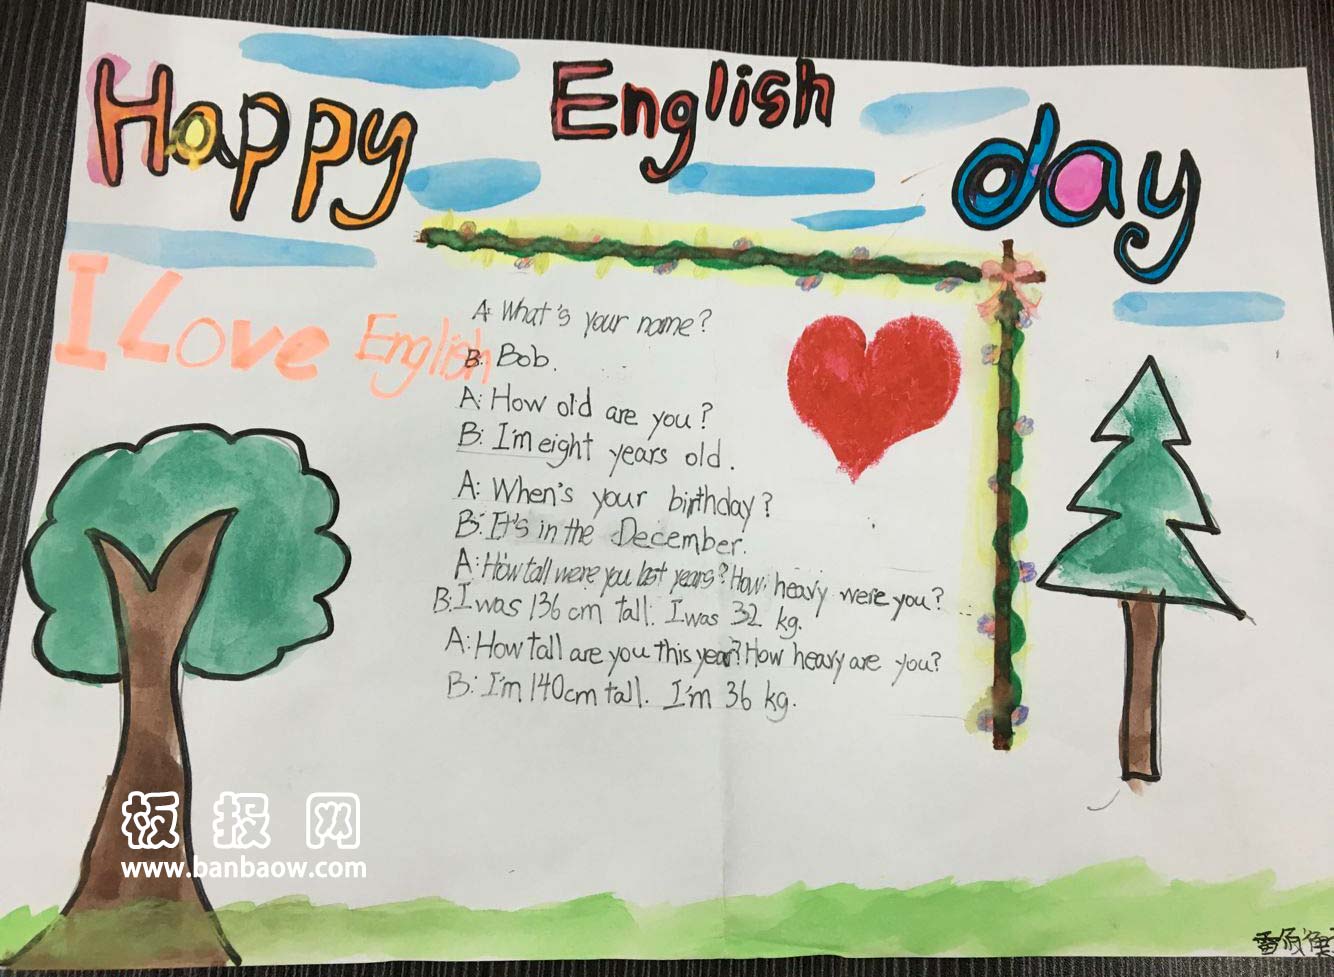 Happy English day
I Love English
A: What's your name?
B: Bob.
A: How old are you?
B: I'm eight years old.
A: When's your birthday?
B: It's in the December.
A: How tall were you last years? How heavy were you?
B: I was 136 cm tall. I was 32 kg.
A: How tall are you this year? How heavy are you?
B: I'm 140cm tall. I'm 36 kg.
板报网
www.banbaow.com